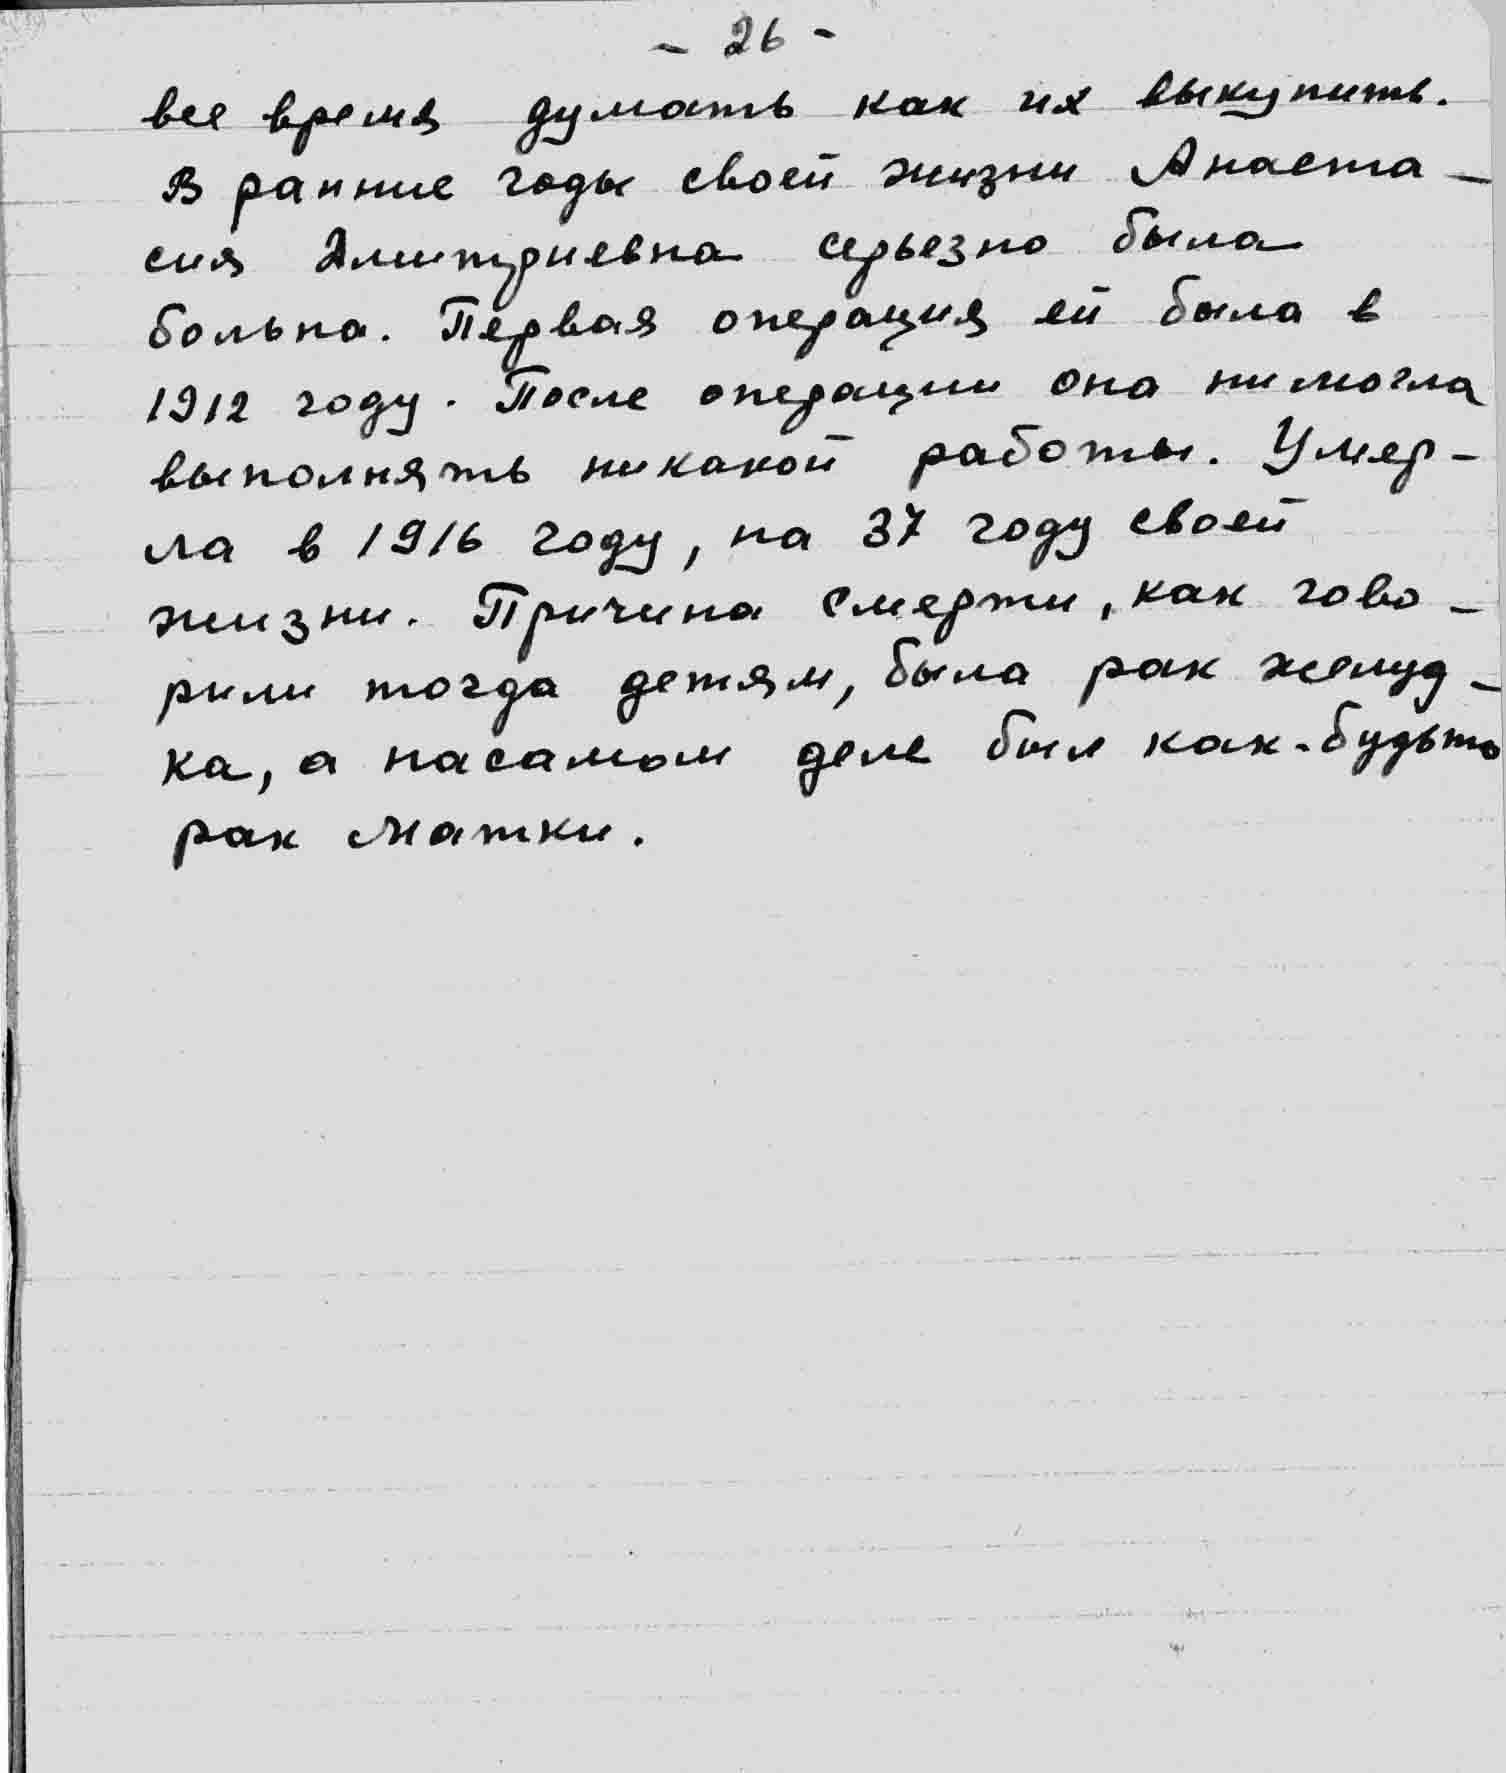 - 26 -
все время думать как их выкупить.
В ранние годы своей жизни Анаста-
сия Дмитриевна серьезно была
больна. Первая операция ей была в
1912 году. После операции она нимогла
выполнять никакой работы. Умер-
ла в 1916 году, на 37 году своей
жизни. Причина смерти, как гово-
рили тогда детям, была рак желуд-
ка, а насамом деле был как-будьто
рак матки.